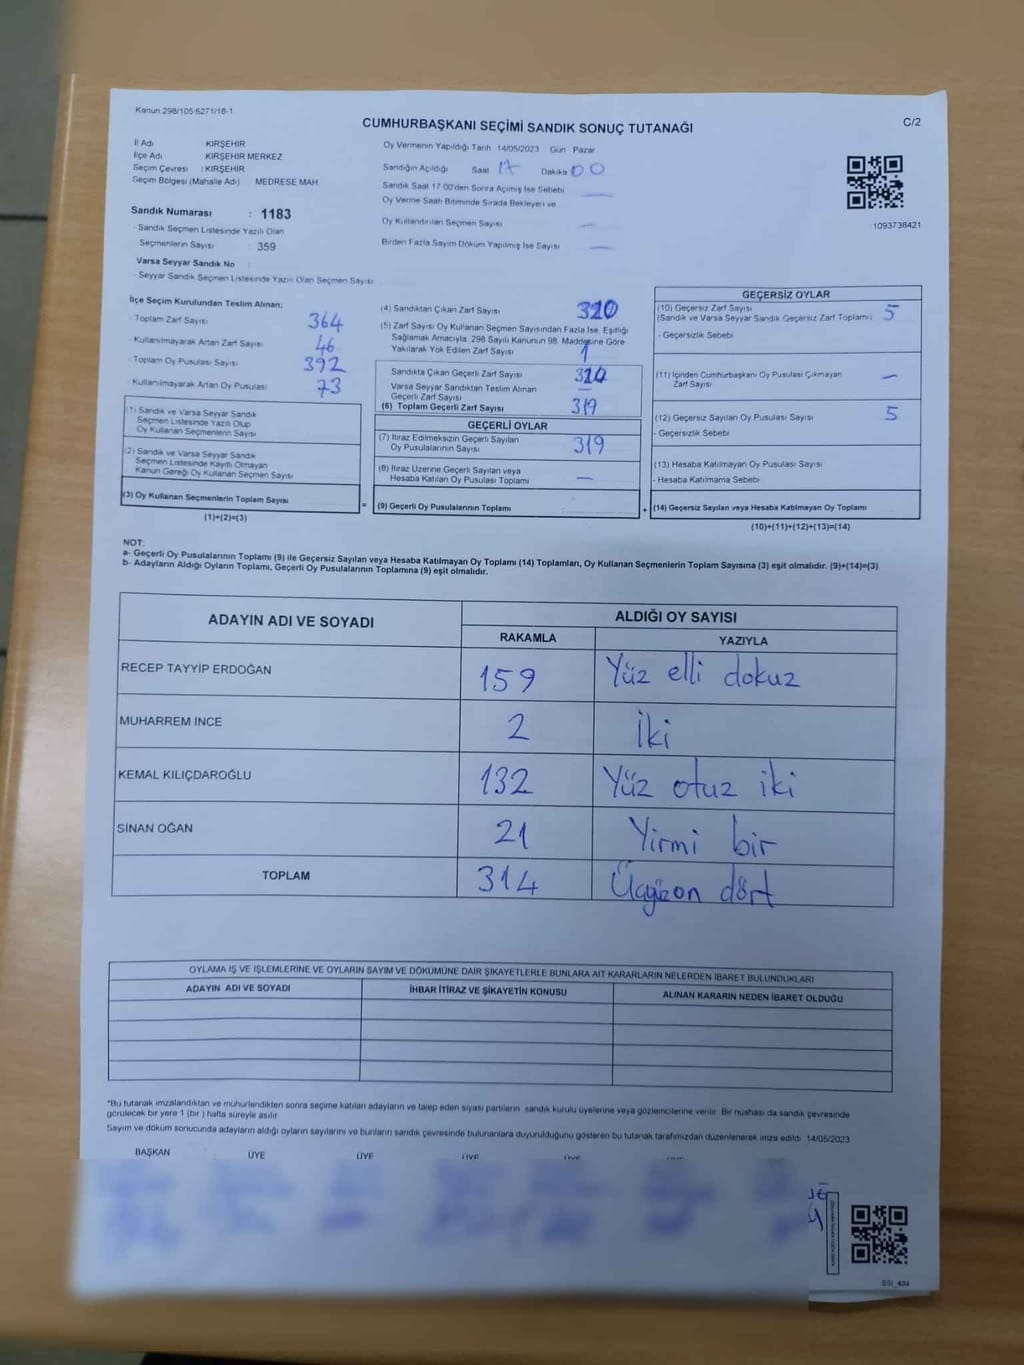 Kanun:298/105;6271/18-1
CUMHURBAŞKANI SEÇİMİ SANDIK SONUÇ TUTANAĞI
C/2
İl Adı KIRŞEHİR
İlçe Adı KIRŞEHİR MERKEZ
Seçim Çevresi : KIRŞEHİR
Seçim Bölgesi (Mahalle Adı) MEDRESE MAH
Sandık Numarası : 1183
- Sandık Seçmen Listesinde Yazılı Olan
Seçmenlerin Sayısı : 359
Varsa Seyyar Sandık No
- Seyyar Sandık Seçmen Listesinde Yazılı Olan Seçmen Sayısı
Oy Vermenin Yapıldığı Tarih 14/05/2023 Gün Pazar
Sandığın Açıldığı Saat 17 Dakika 00
Sandık Saat 17:00'den Sonra Açılmış İse Sebebi
Oy Verme Saati Bitiminde Sırada Bekleyen ve
Oy Kullandırılan Seçmen Sayısı —
Birden Fazla Sayım Döküm Yapılmış İse Sayısı —
1093738421
İlçe Seçim Kurulundan Teslim Alınan;
- Toplam Zarf Sayısı 364
- Kullanılmayarak Artan Zarf Sayısı 46
- Toplam Oy Pusulası Sayısı 392
- Kullanılmayarak Artan Oy Pusulası 73
(1) Sandık ve Varsa Seyyar Sandık
Seçmen Listesinde Yazılı Olup
Oy Kullanan Seçmenlerin Sayısı
(2) Sandık ve Varsa Seyyar Sandık
Seçmen Listesinde Kayıtlı Olmayan
Kanun Gereği Oy Kullanan Seçmen Sayısı
(3) Oy Kullanan Seçmenlerin Toplam Sayısı
(1)+(2)=(3)
(4) Sandıktan Çıkan Zarf Sayısı 320
(5) Zarf Sayısı Oy Kullanan Seçmen Sayısından Fazla İse, Eşitliği
Sağlamak Amacıyla, 298 Sayılı Kanunun 98. Maddesine Göre
Yakılarak Yok Edilen Zarf Sayısı 1
Sandıkta Çıkan Geçerli Zarf Sayısı
Varsa Seyyar Sandıktan Teslim Alınan
Geçerli Zarf Sayısı —
(6) Toplam Geçerli Zarf Sayısı 319
GEÇERLİ OYLAR
(7) İtiraz Edilmeksizin Geçerli Sayılan
Oy Pusulalarının Sayısı 319
(8) İtiraz Üzerine Geçerli Sayılan veya
Hesaba Katılan Oy Pusulası Toplamı —
= (9) Geçerli Oy Pusulalarının Toplamı
GEÇERSİZ OYLAR
(10) Geçersiz Zarf Sayısı 5
(Sandık ve Varsa Seyyar Sandık Geçersiz Zarf Toplamı)
- Geçersizlik Sebebi
(11) İçinden Cumhurbaşkanı Oy Pusulası Çıkmayan
Zarf Sayısı —
(12) Geçersiz Sayılan Oy Pusulası Sayısı 5
- Geçersizlik Sebebi
(13) Hesaba Katılmayan Oy Pusulası Sayısı
- Hesaba Katılmama Sebebi
+ (14) Geçersiz Sayılan veya Hesaba Katılmayan Oy Toplamı
(10)+(11)+(12)+(13)=(14)
NOT:
a- Geçerli Oy Pusulalarının Toplamı (9) ile Geçersiz Sayılan veya Hesaba Katılmayan Oy Toplamı (14) Toplamları, Oy Kullanan Seçmenlerin Toplam Sayısına (3) eşit olmalıdır. (9)+(14)=(3)
b- Adayların Aldığı Oyların Toplamı, Geçerli Oy Pusulalarının Toplamına (9) eşit olmalıdır.
ADAYIN ADI VE SOYADI ALDIĞI OY SAYISI
RAKAMLA YAZIYLA
RECEP TAYYIP ERDOĞAN 159 Yüz elli dokuz
MUHARREM İNCE 2 İki
KEMAL KILIÇDAROĞLU 132 Yüz otuz iki
SİNAN OĞAN 21 Yirmi bir
TOPLAM 314 Üçyüzon dört
OYLAMA İŞ VE İŞLEMLERİNE VE OYLARIN SAYIM VE DÖKÜMÜNE DAİR ŞİKAYETLERLE BUNLARA AİT KARARLARIN NELERDEN İBARET BULUNDUKLARI
ADAYIN ADI VE SOYADI İHBAR İTİRAZ VE ŞİKAYETİN KONUSU ALINAN KARARIN NEDEN İBARET OLDUĞU
*Bu tutanak imzalandıktan ve mühürlendikten sonra seçime katılan adayların ve talep eden siyasi partilerin sandık kurulu üyelerine veya gözlemcilerine verilir. Bir nüshası da sandık çevresinde
görülecek bir yere 1 (bir ) hafta süreyle asılır
Sayım ve döküm sonucunda adayların aldığı oyların sayılarını ve bunların sandık çevresinde bulunanlara duyurulduğunu gösteren bu tutanak tarafımızdan düzenlenerek imza edildi. 14/05/2023
BAŞKAN ÜYE ÜYE ÜYE ÜYE